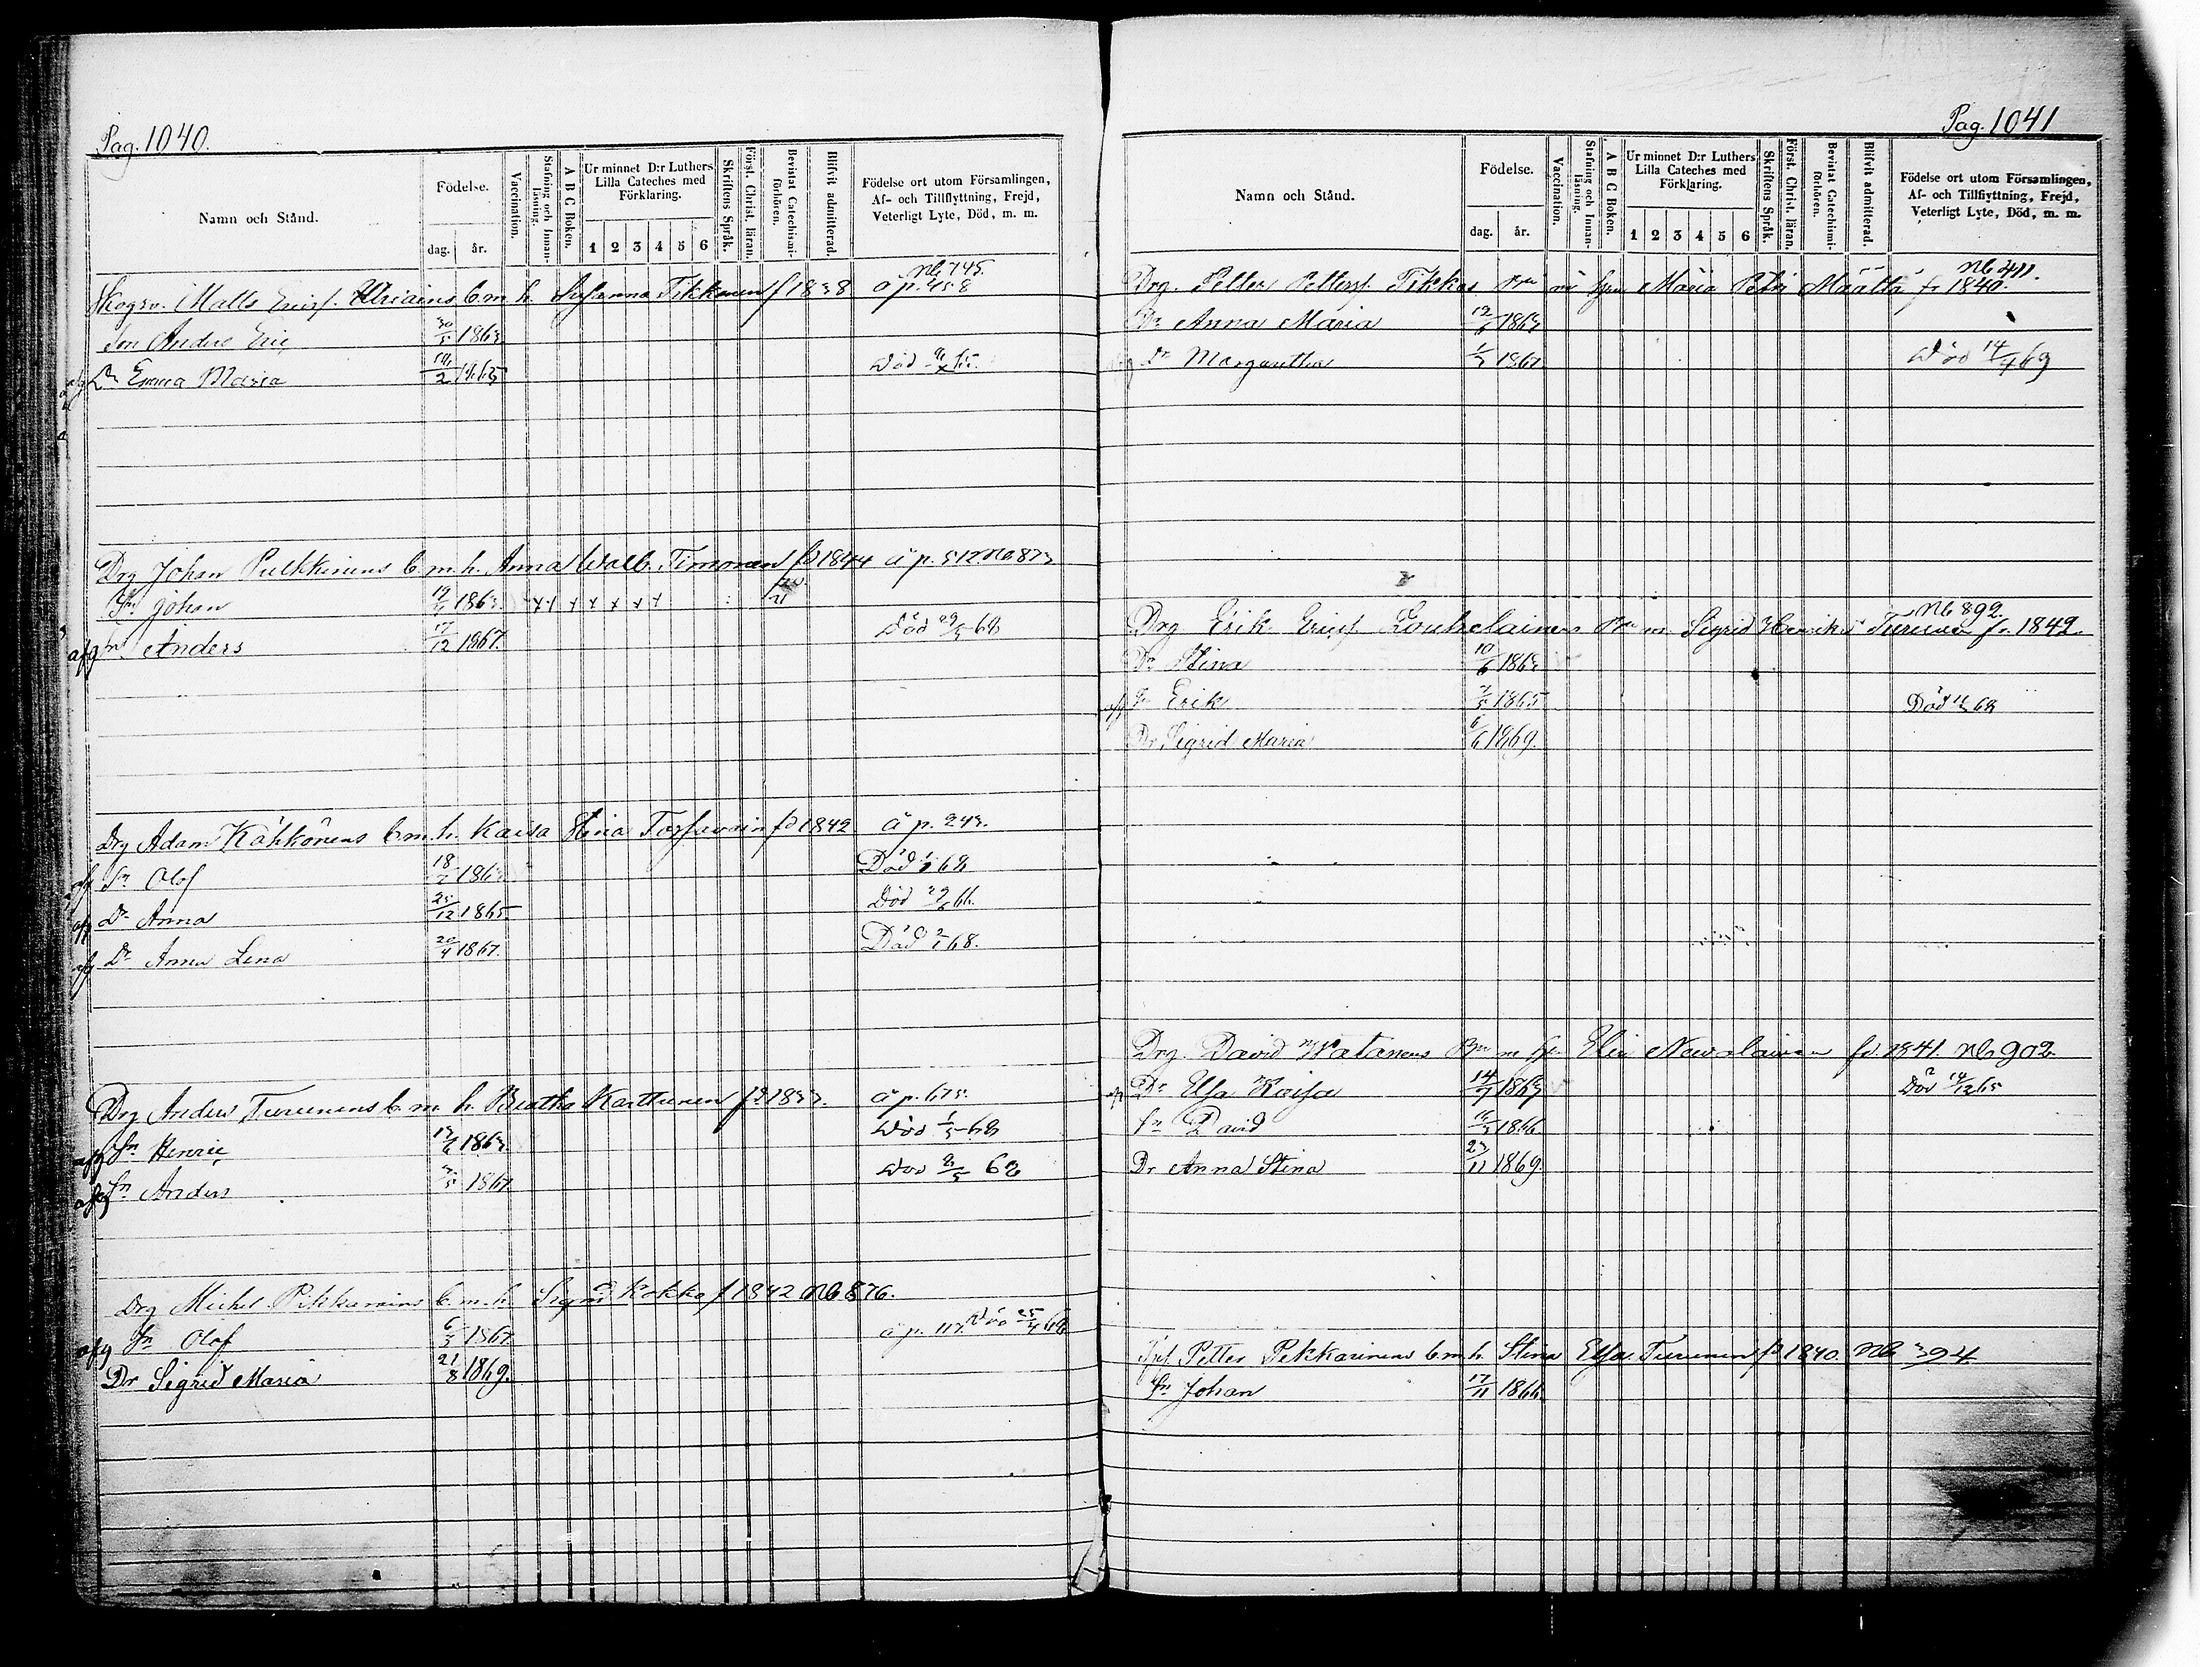 Pag. 1040.
Namn och Stånd.
Födelse.
dag.
år.
Vaccination.
Stafning och Innan-läsning.
A B C Boken.
Ur minnet D:r Luthers
Lilla Cateches med
Förklaring.
1 2 3 4 5 6
Skriftens Språk.
Först. Christ. läran.
Bevistat Catechismi-förhören.
Blifvit admitterad.
Födelse ort utom Församlingen,
Af- och Tillflyttning, Frejd,
Veterligt Lyte, Död, m. m.
No 745.
Skogsv. Matts Ericss. b. m. h. Susanna Tikkanen f 1838 á p. 458
Son Anders Eric 30/5 1863
afg Dr Emma Maria 10/2 1865 Död
Drg Johan Pulkkinens b. m. h. Anna Walb. Timonen fd 1844 á p. 512 No 873
Sn Johan 1863
afg Sn Anders 17/12 1867. Död 29/5 68
Drg Adam Kähkönens b. m. h. Kaisa Stina fd 1842 á p. 243.
afg Sn Olof 1863 Död 68
afg Dr Anna 25/12 1865. Död 66.
afg Dr Anna Lena 20/4 1867. Död 68.
Drg Anders Turunens b. m. h. Beatha Karttunen fd 1833. á p. 675.
afg Sn Henric 1863. Död 1/5 68
afg Sn Anders 3/5 1867. Död 2/5 68
Drg Michel Pikkarains b. m. h. Sigrid Kokko f 1842 No 876.
afg Sn Olof 6/5 1867. á p. 117. Död 25/4 68
Dr Sigrid Maria 21/8 1869.
Pag. 1041
Namn och Stånd.
Födelse.
dag.
år.
Vaccination.
Stafning och Innan-läsning.
A B C Boken.
Ur minnet D:r Luthers
Lilla Cateches med
Förklaring.
1 2 3 4 5 6
Skriftens Språk.
Först. Christ. läran.
Bevistat Catechismi-förhören.
Blifvit admitterad.
Födelse ort utom Församlingen,
Af- och Tillflyttning, Frejd,
Veterligt Lyte, Död, m. m.
No 411.
Drg. Petter Petterss. Tikkas Maria Määttä f. 1840.
Dr Anna Maria 1863
Dr Margaretha 1867. Död 14/4 69
No 892.
Drg Erik Ericss Louhelainens m Sigrid Henriks Turunen f. 1842.
Dr Stina 10/6 1863
afg Sn Erik 7/5 1865 Död 68
Dr Sigrid Maria 6/6 1869.
Drg. David Watanens Elin Nevalainen fd. 1841. No 902.
Dr Elsa Kaisa 14/9 1863 Död 14/12 65
Sn David 1866
Dr Anna Stina 23/11 1869.
Petter Pekkarinens b. m. h. Stina Elsa Turunen fd 1840. No 394
Sn Johan 17/11 1866.